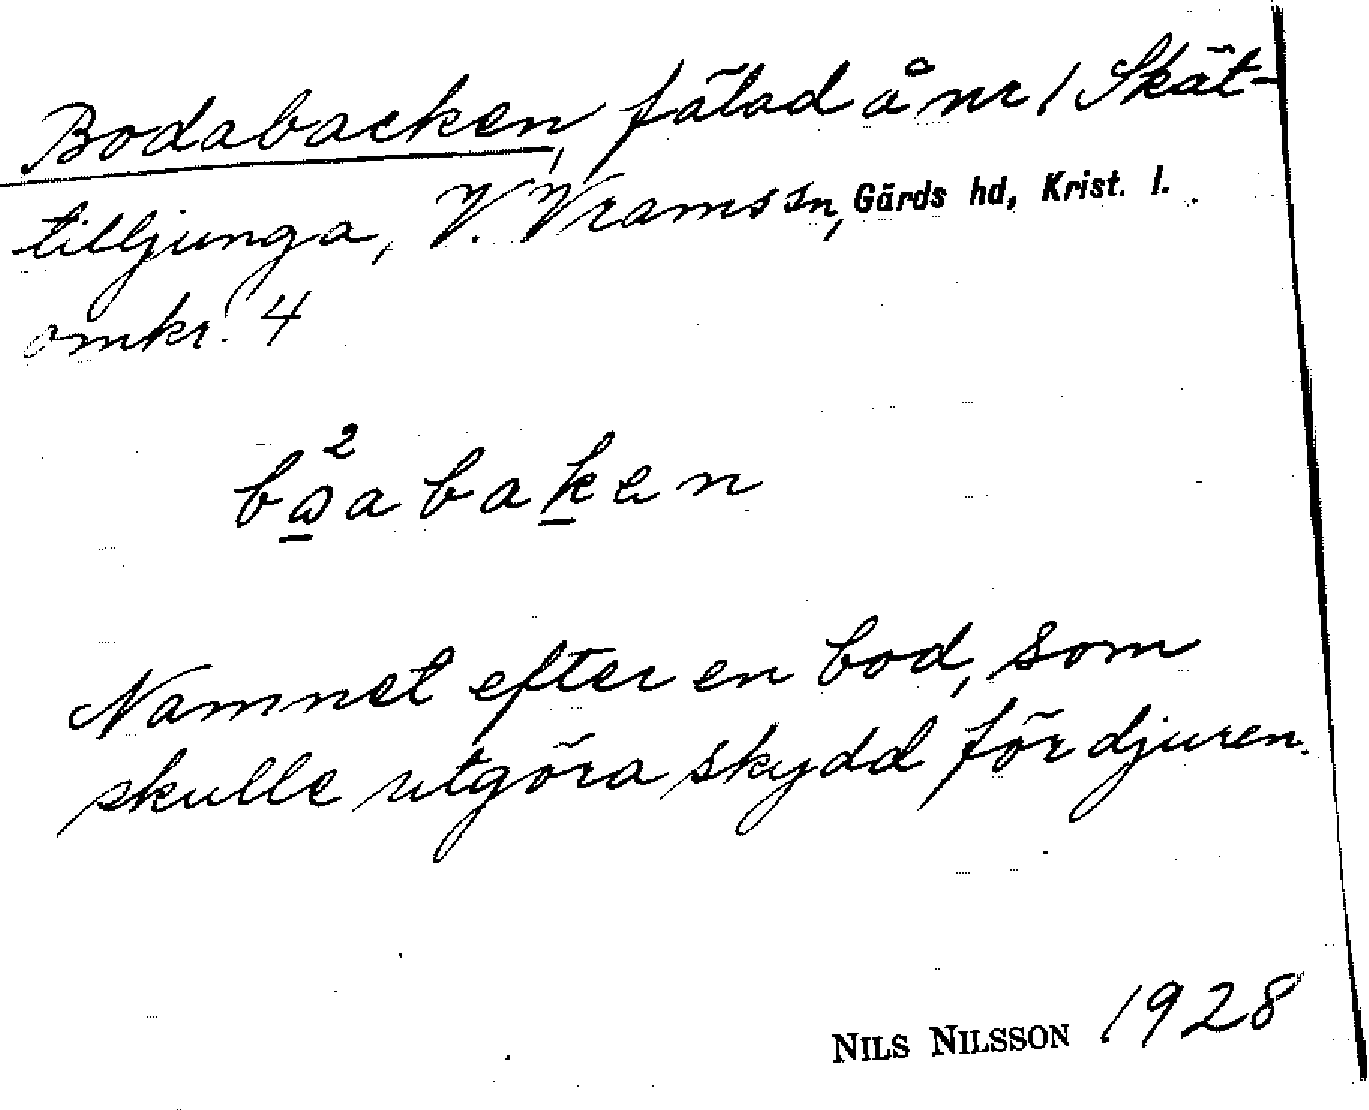 Bodabacken, fälad å nr 1 Skät-
tilljunga, V. Vrams sn, Gärds hd, Krist. l.
omkr. 4
Namnet efter en bod, som
skulle utgöra skydd för djuren.
NILS NILSSON 1928